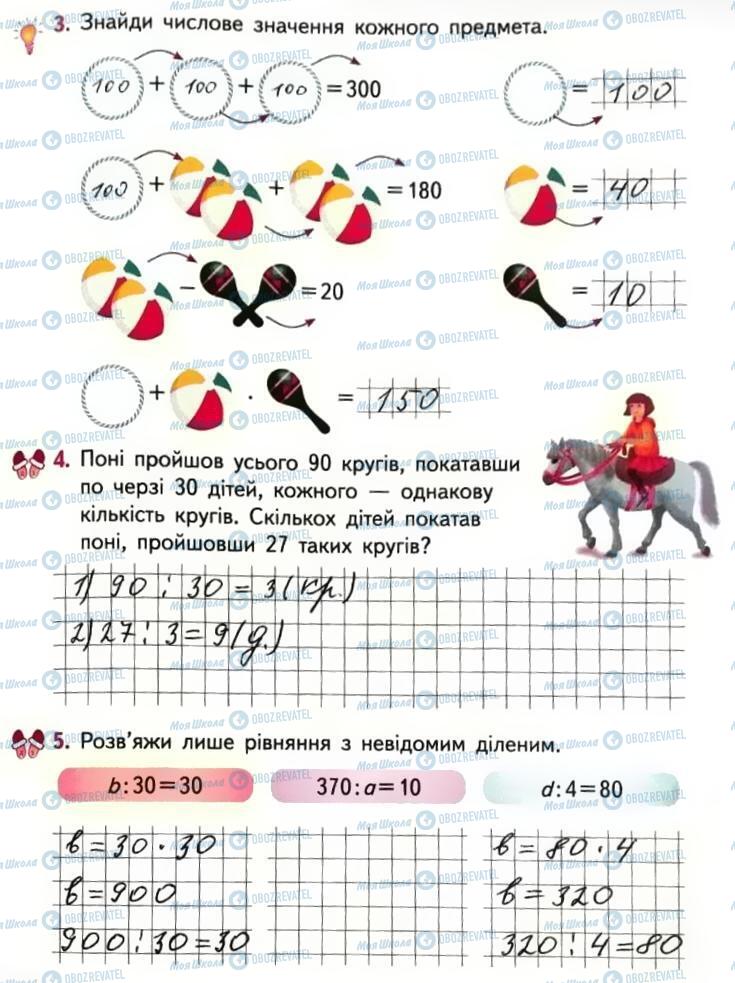 3. Знайди числове значення кожного предмета.
100 + 100 + 100 = 300 = 100
100 + + = 180 = 40
− = 20 = 10
+ · = 150
4. Поні пройшов усього 90 кругів, покатавши
по черзі 30 дітей, кожного — однакову
кількість кругів. Скількох дітей покатав
поні, пройшовши 27 таких кругів?
1) 90 : 30 = 3 (кр.)
2) 27 : 3 = 9 (д.)
5. Розв’яжи лише рівняння з невідомим діленим.
b:30=30 370:a=10 d:4=80
в = 30 · 30 в = 80 · 4
в = 900 в = 320
900 : 30 = 30 320 : 4 = 80